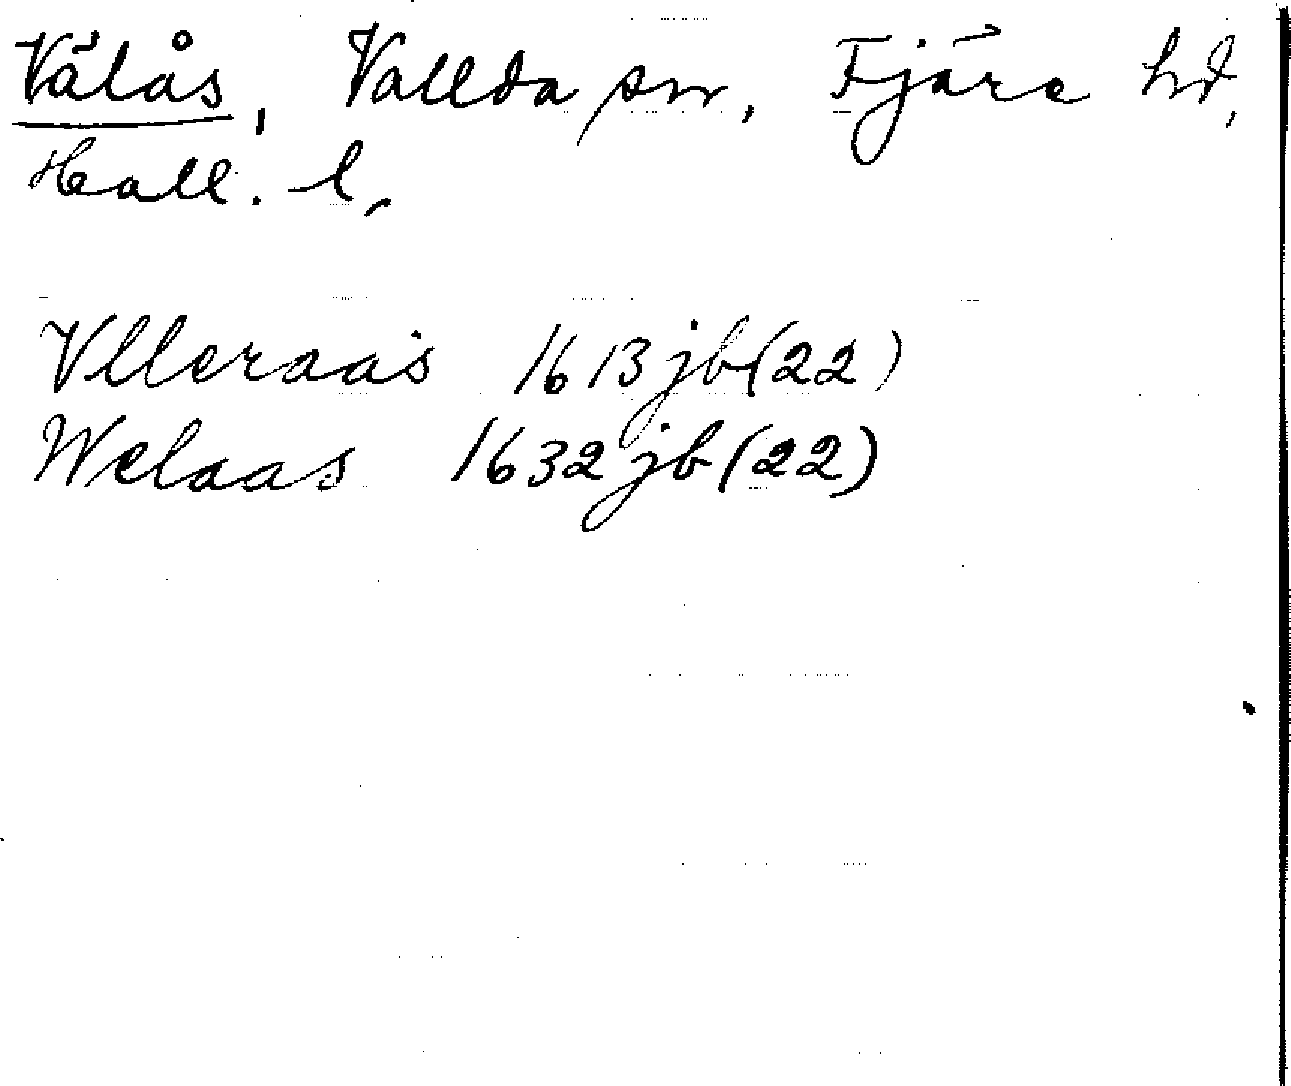 Välås, Vallda sn, Fjäre hd,
Hall. l,
Vlleraas 1613 jb (22)
Welaas 1632 jb (22)